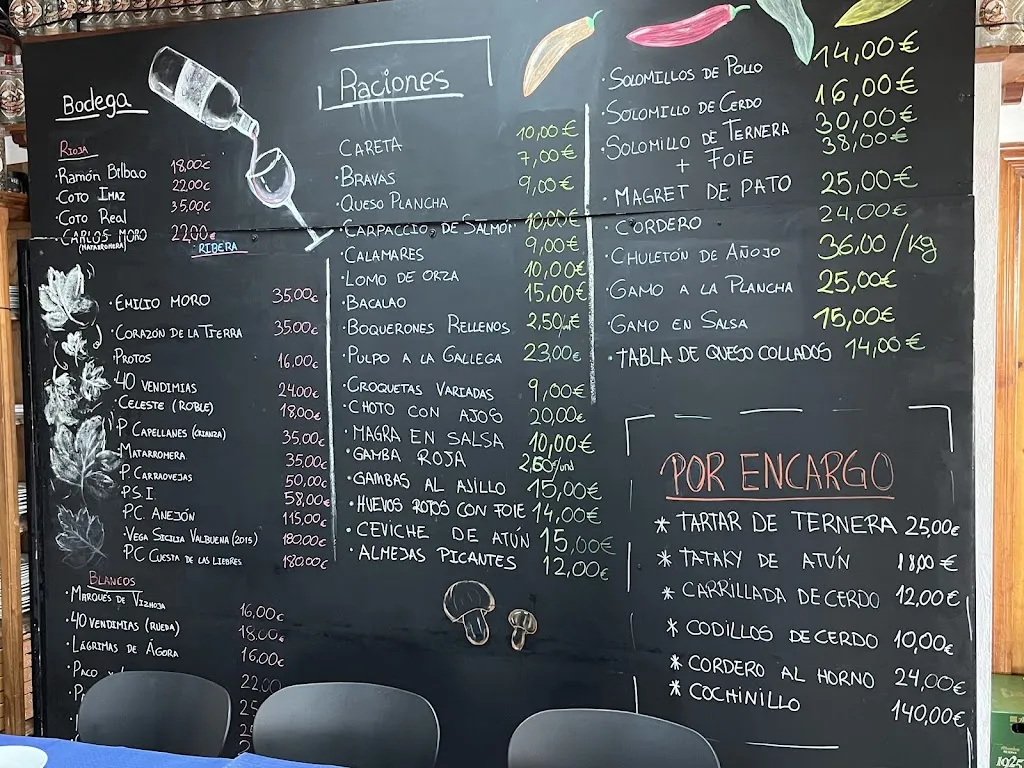 Bodega
RIOJA
·RAMÓN BILBAO 18,00€
·COTO IMAZ 22,00€
·COTO REAL 35,00€
·CARLOS MORO 22,00€
(MATARROMERA)
RIBERA
·EMILIO MORO 35,00€
·CORAZÓN DE LA TIERRA 35,00€
·PROTOS 16,00€
·40 VENDIMIAS 24,00€
·CELESTE (ROBLE) 18,00€
·P CAPELLANES (CRIANZA) 35,00€
·MATARROMERA 35,00€
·P. CARRAOVEJAS 50,00€
·P.S.I. 58,00€
·PC. ANEJÓN 115,00€
·VEGA SICILIA VALBUENA (2015) 180,00€
·PC CUESTA DE LAS LIEBRES 180,00€
BLANCOS
·MARQUÉS DE VIZHOJA 16,00€
·40 VENDIMIAS (RUEDA) 18,00€
·LÁGRIMAS DE ÁGORA 16,00€
·PACO 22,00
Raciones
CARETA 10,00€
·BRAVAS 7,00€
·QUESO PLANCHA 9,00€
·CARPACCIO DE SALMON 10,00€
·CALAMARES 9,00€
·LOMO DE ORZA 10,00€
·BACALAO 15,00€
·BOQUERONES RELLENOS 2,50
·PULPO A LA GALLEGA 23,00€
·CROQUETAS VARIADAS 9,00€
·CHOTO CON AJOS 20,00€
·MAGRA EN SALSA 10,00€
·GAMBA ROJA 2,50€/und
·GAMBAS AL AJILLO 15,00€
·HUEVOS ROTOS CON FOIE 14,00€
·CEVICHE DE ATÚN 15,00€
·ALMEJAS PICANTES 12,00€
·SOLOMILLOS DE POLLO 14,00€
·SOLOMILLO DE CERDO 16,00€
·SOLOMILLO DE TERNERA 30,00€
+ FOIE 38,00€
·MAGRET DE PATO 25,00€
·CORDERO 24,00€
·CHULETÓN DE AÑOJO 36,00/Kg
·GAMO A LA PLANCHA 25,00€
·GAMO EN SALSA 15,00€
·TABLA DE QUESO COLLADOS 14,00€
POR ENCARGO
* TARTAR DE TERNERA 25,00€
* TATAKY DE ATÚN 18,00€
* CARRILLADA DE CERDO 12,00€
* CODILLOS DE CERDO 10,00€
* CORDERO AL HORNO 24,00€
* COCHINILLO 140,00€
1925